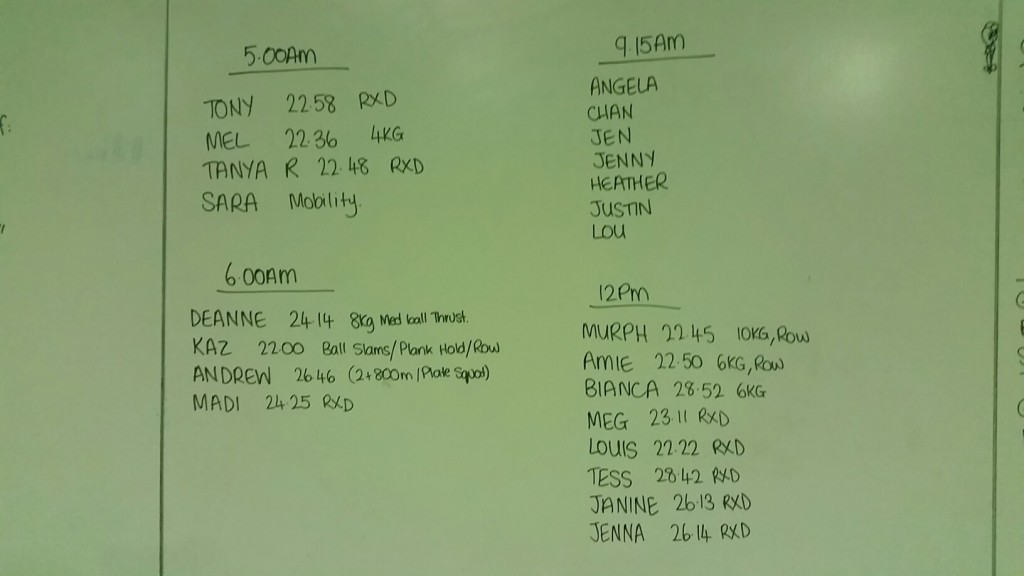 5.00AM
TONY 22.58 RXD
MEL 22.36 4KG
TANYA R 22.48 RXD
SARA Mobility.
6.00AM
DEANNE 24.14 8kg Med ball Thrust.
KAZ 22.00 Ball Slams/Plank Hold/Row
ANDREW 26.46 (2+800m/Plate Squat)
MADI 24.25 RXD
9.15AM
ANGELA
CHAN
JEN
JENNY
HEATHER
JUSTIN
LOU
12Pm
MURPH 22.45 10KG, Row
AMIE 22.50 6KG, Row
BIANCA 28.52 6KG
MEG 23.11 RXD
LOUIS 22.22 RXD
TESS 28.42 RXD
JANINE 26.13 RXD
JENNA 26.14 RXD